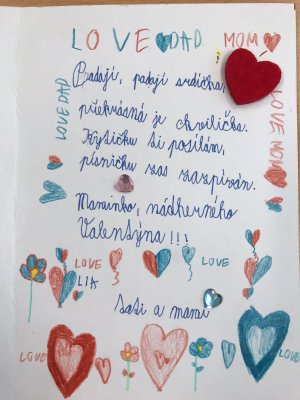 LOVE DAD MOM
LOVE DAD
Padají, padají srdíčka,
překrásná je chvilička.
Kytičku ti posílám,
písničku zas zazpívám.
Maminko, nádherného
Valentýna!!!
LOVE MOM
LOVE LOVE
LIA
tati a mami
LOVE LOVE